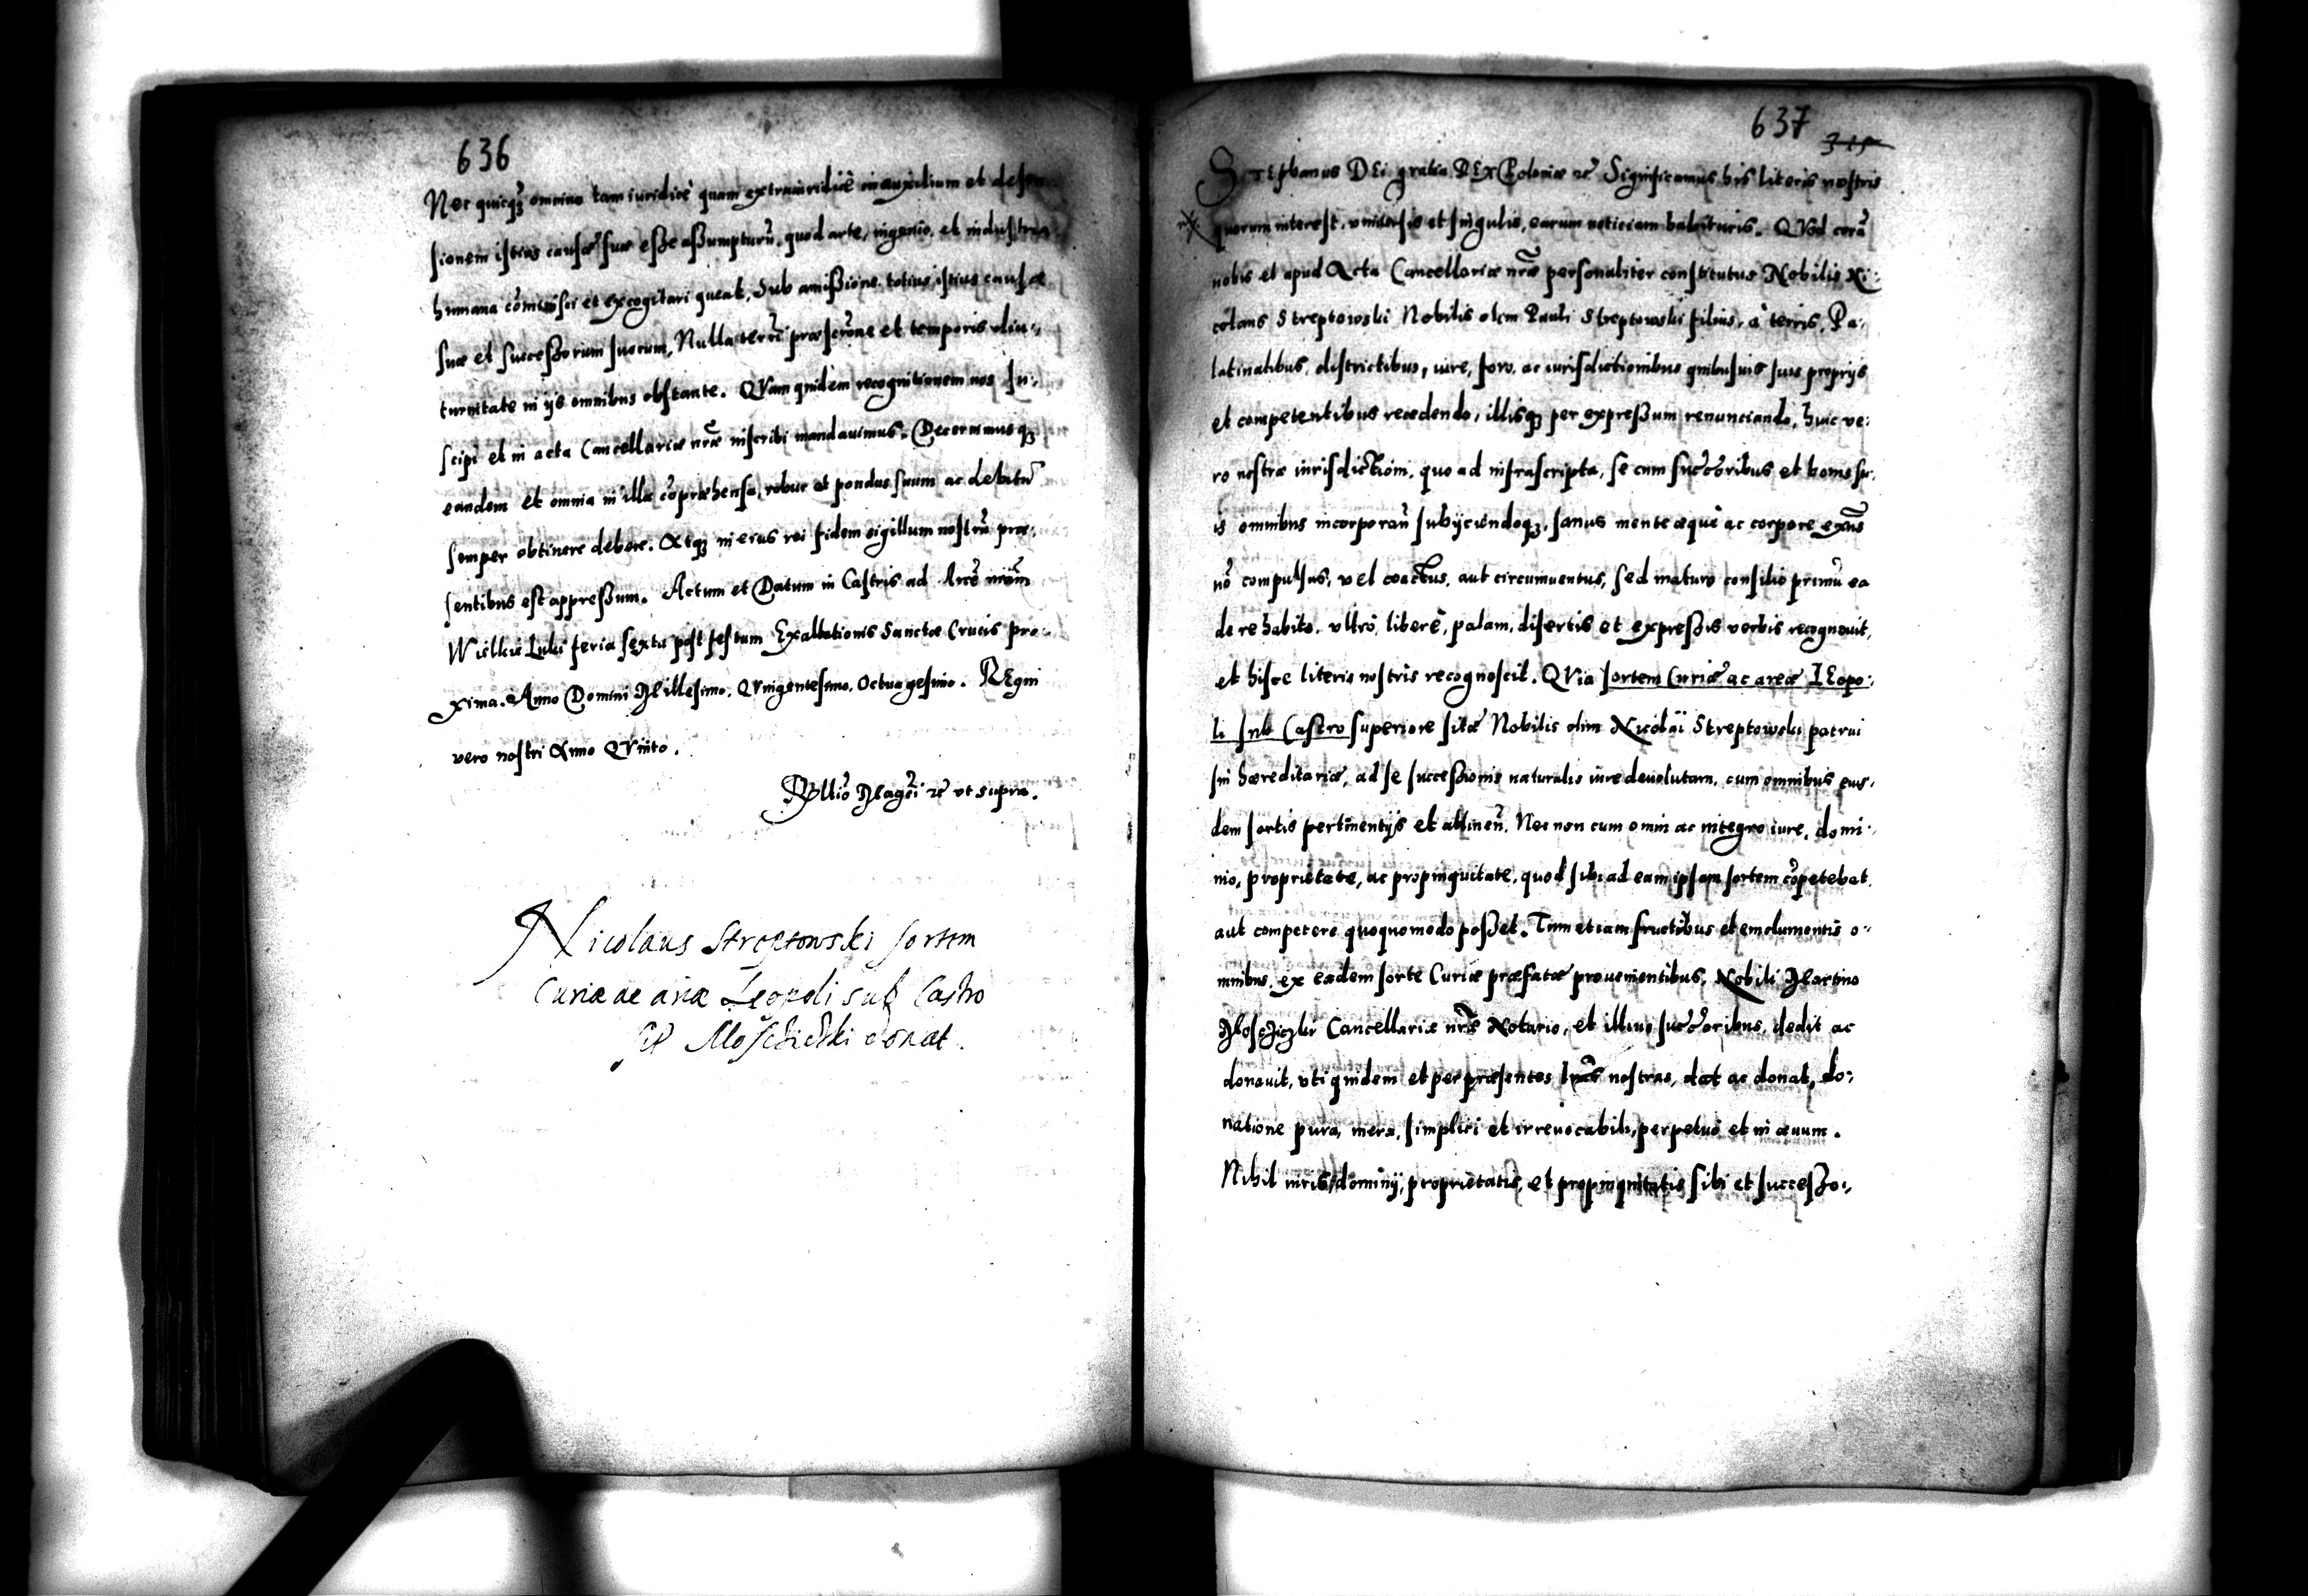 636
Nec quicq3 omnino tam iuridicè quam extraiuridicè in auxilium et defen
sionem istius causæ suæ eße aßumpturũ, quod arte, ingenio, et industria
humana cõminisci et excogitari queat, Sub amißione totius istius causæ
suæ et succeßorum suorum, Nulla terre præscrõne et temporis diu:
turnitate in ijs omnibus obstante. QVam quidem recognitionem nos su:
scipi et in acta Cancellariæ nræ inscribi mandauimus. Decernimusq3
eandem et omnia in illa cõpræhensa, robur et pondus suum ac debitũ
semper obtinere debere. Atq3 in eius rei fidem sigillum nostrũ præ:
sentibus est appreßum. Actum et Datum in Castris ad Arcẽ
Wielkie Luki feria sexta post festum Exaltationis Sanctæ Crucis pro:
xima. Anno Domini Millesimo. QVingentesimo. Octuagesimo. REgni
vero nostri Anno QVinto.
Rllio Magci rc vt supra.
Nicolaus Streptowski sortem
Curiæ ac areæ Leopoli sub Castro
donat.
637
315
STEphanus DEi gratia REX Poloniæ rc Significamus his literis nostris
quorum interest, vniuersis et singulis, earum noticiam habituris. QVod corã
nobis et apud Acta Cancellariæ nræ personaliter constitutus Nobilis Ni:
colaus Streptowski Nobilis olim Pauli Streptowski filius, à terris, Pa:
latinatibus, districtibus, iure, foro, ac iurisdictionibus quibusuis suis proprijs
et competentibus recedendo, illisq3 per expreßum renunciando, huic ve:
ro nostræ iurisdictioni, quo ad infrascripta, se cum succoribus et bonis su:
is omnibus incorporañ subijciendoq3, sanus mente æquè ac corpore exñs
nõ compulsus, vel coactus, aut circumuentus, sed maturo consilio primũ ea
de re habito, vltrò, liberè, palam, disertis et expreßis verbis recognouit,
et hisce literis nostris recognoscit. QVia sortem Curiæ ac areæ LEopo:
li sub Castro superiore sitæ Nobilis olim Nicolai Streptowski patrui
sui hæreditariæ, ad se succeßionis naturalis iure deuolutam, cum omnibus eius:
dem sortis pertinentijs et attineñ, Nec non cum omni ac integro iure, domi:
nio, proprietate, ac propinquitate, quod sibi ad eam ipsam sortem cõpetebat,
aut competere quoquomodo poßet. Tum etiam fructibus et emolumentis o:
mnibus, ex eadem sorte Curiæ præfatæ prouenientibus, Nobili Martino
Cancellariæ nræ Notario, et illius succoribus, dedit ac
donauit, vti quidem et per præsentes lras nostras, dat ac donat, do:
natione pura, mera, simplici et irreuocabili, perpetuò et in æuum.
Nihil iuris, dominij, proprietatis, et propinquitatis sibi et succeßo:,